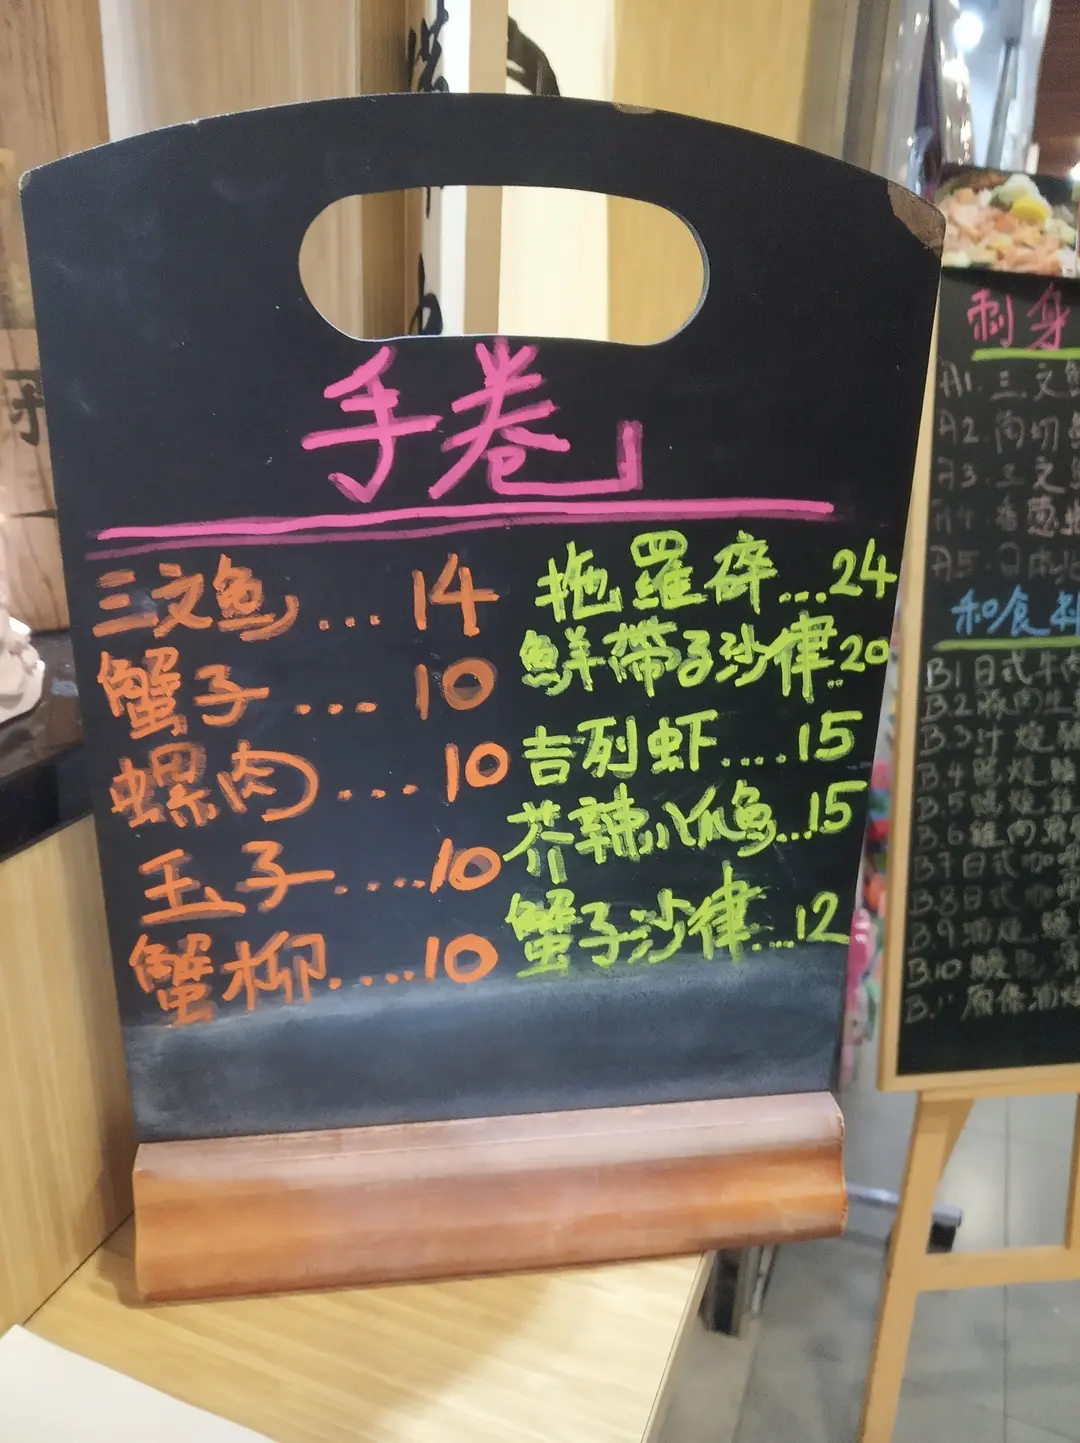 手卷
三文魚... 14
蟹子... 10
螺肉.... 10
玉子.... 10
蟹柳.... 10
拖羅碎...24
鮮帶子沙律..20
吉列虾....15
芥辣八爪魚...15
蟹子沙律....12
刺身
A1.三文
A2.
A3.三文
A5.日本
和食
B1日式牛肉
B2豚肉
B.3汁燒
B.4
B.5
B.6雞肉
B7日式咖
B.8日式
B.9
B.10 鰻魚
B.11 原條